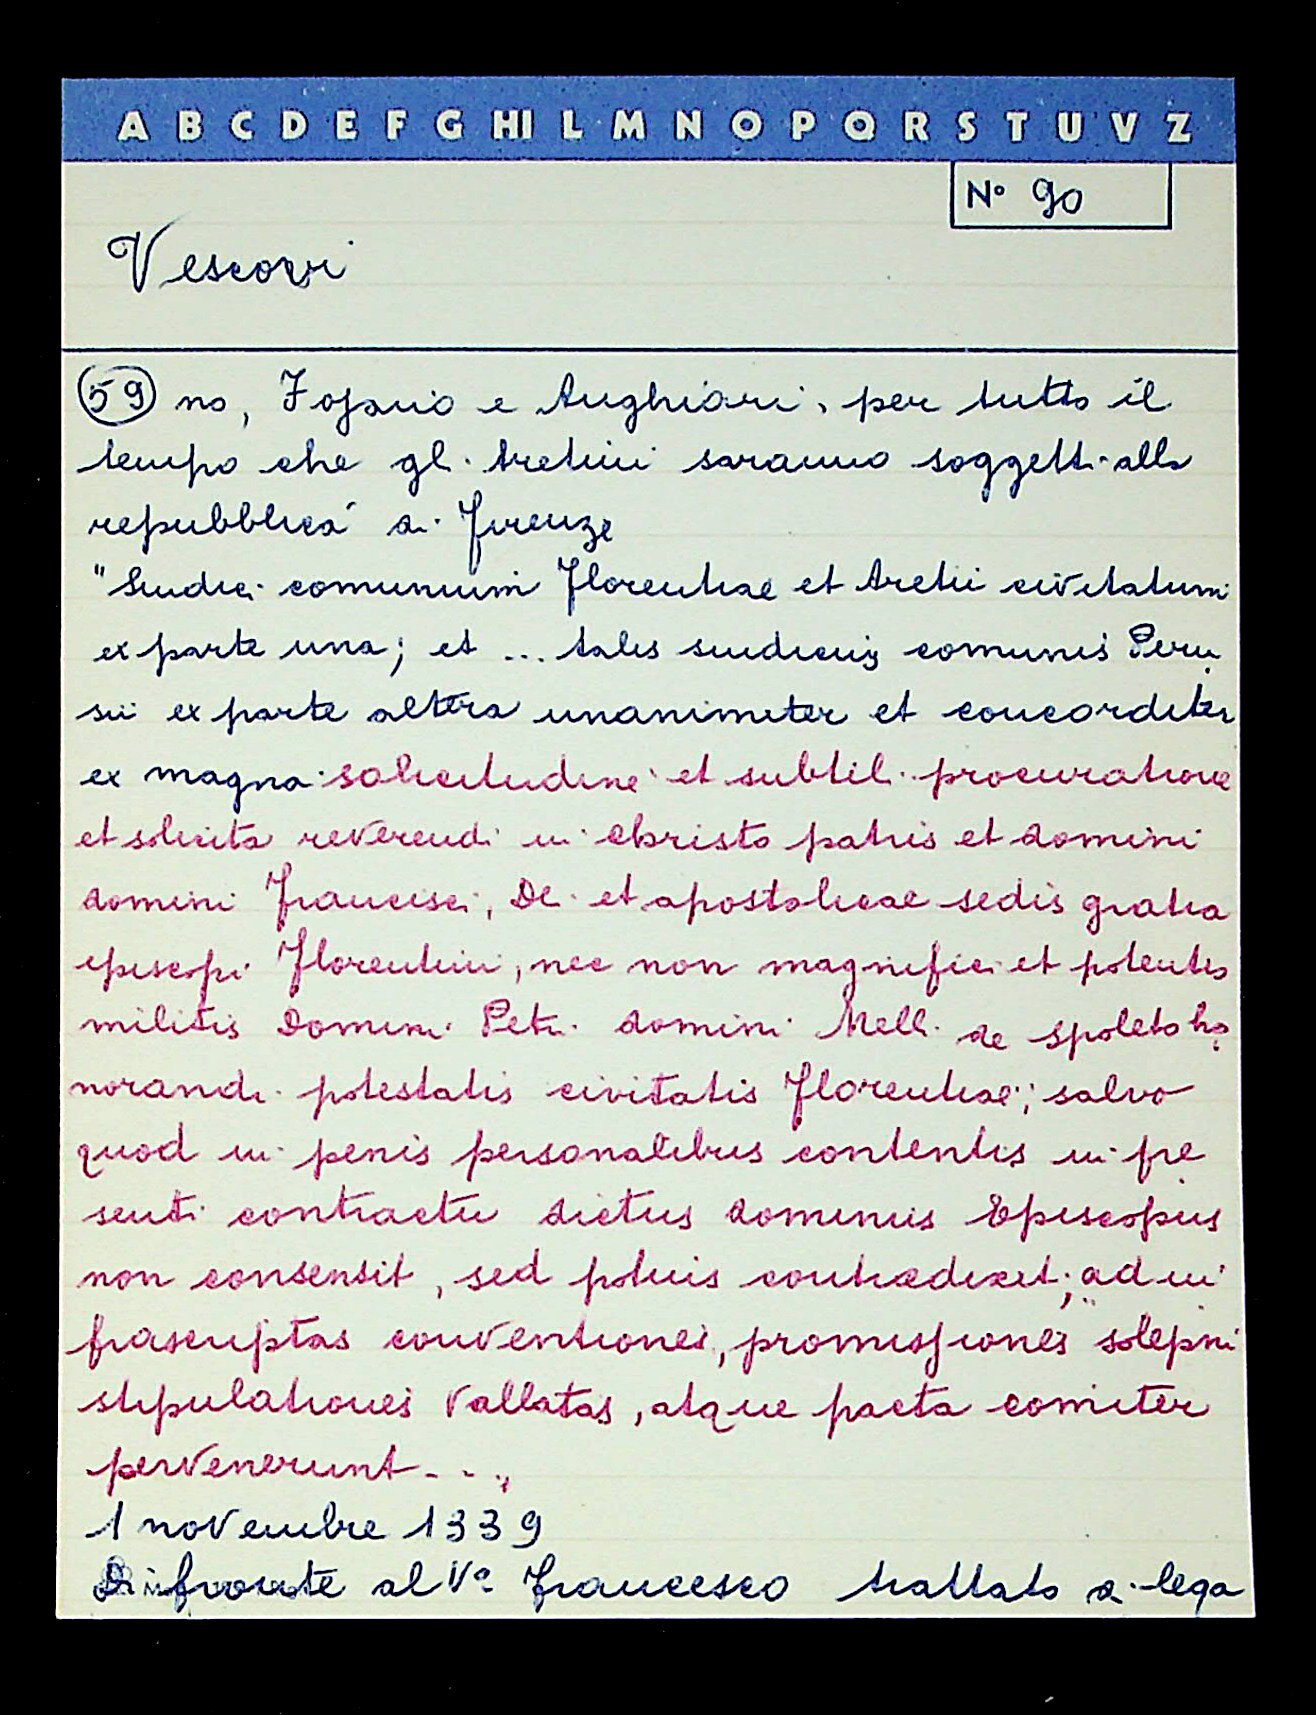 A B C D E F G HI L M N O P Q R S T U V Z
N° 90
Vescovi
59 no, Fojano e Anghiari, per tutto il
tempo che gli Aretini saranno soggetti alla
repubblica di Firenze
"Sindici comunium Florentiae et Aretii civitatum
ex parte una; et ... talis sindicus comunis Peru
sii ex parte altera unanimiter et concorditer
ex magna solicitudine et subtili procuratione
et solicita reverendi in Christo patris et domini
domini Francisci, Dei et apostolicae sedis gratia
episcopi Florentini, nec non magnifici et potentis
militis Domini Petri domini Melli de Spoleto ho
norandi potestatis civitatis Florentiae; salvo
quod in penis personalibus contentis in pre
senti contractu dictus dominus Episcopus
non consensit, sed potius contradixit; ad in
frascriptas conventiones, promissiones solepni
stipulationes vallatas, atque pacta comiter
pervenerunt...,
1 novembre 1339
Di fronte al V° Francesco trattato di lega